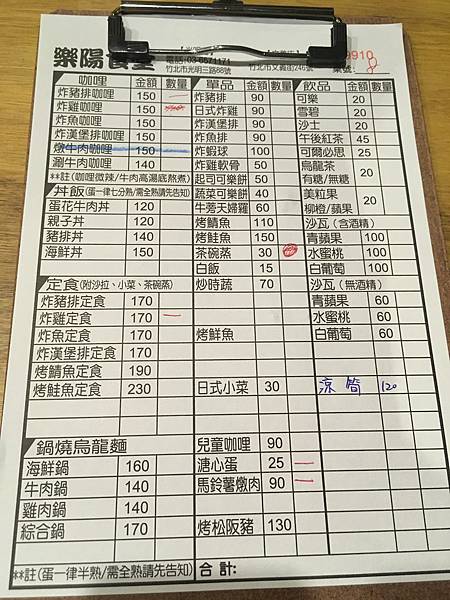 樂陽食堂
電話:03-6571171
竹北市光明三路88號
竹北市文義街245號
9910
桌號: 8
咖哩 金額 數量 單品 金額 數量 飲品 金額 數量
炸豬排咖哩 150 一 炸豬排 90 可樂 20
炸雞咖哩 150 日式炸雞 90 雪碧 20
炸魚咖哩 150 炸漢堡排 90 沙士 20
炸漢堡排咖哩 150 炸魚排 90 午後紅茶 45
燉牛肉咖哩 150 炸蝦球 100 可爾必思 25
涮牛肉咖哩 140 炸雞軟骨 50 烏龍茶 有糖/無糖 20
**註(咖哩微辣/牛肉高湯底熬煮) 起司可樂餅 50
丼飯(蛋一律七分熟/需全熟請先告知) 蔬菜可樂餅 40 美粒果 柳橙/蘋果 20
蛋花牛肉丼 120 牛蒡天婦羅 60
親子丼 120 烤鯖魚 110 沙瓦(含酒精)
豬排丼 140 烤鮭魚 150 青蘋果 100
海鮮丼 150 茶碗蒸 30 水蜜桃 100
白飯 15 白葡萄 100
定食(附沙拉、小菜、茶碗蒸) 炒時蔬 70 沙瓦(無酒精)
炸豬排定食 170 青蘋果 60
炸雞定食 170 一 水蜜桃 60
炸魚定食 170 烤鮮魚 白葡萄 60
炸漢堡排定食 170
烤鯖魚定食 190
烤鮭魚定食 230 日式小菜 30 涼筍 120
鍋燒烏龍麵 兒童咖哩 90
海鮮鍋 160 溏心蛋 25 一
牛肉鍋 140 馬鈴薯燉肉 90 一
雞肉鍋 140
綜合鍋 170 烤松阪豬 130
**註(蛋一律半熟/需全熟請先告知) 合計: